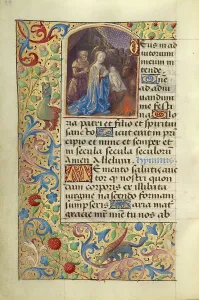 Deus in ad
iutorium
meum in
tende.
Dne
ad adiu
uandum
me fes
ti Glo
ria patri et filio et spiritui
sancto Sicut erat in pri
cipio et nunc et semper et
in secula secula seculorū
Amen Alleluia. hymnus
Memento salutis auc
tor q̄ nostri quon
dam corporis ex illibata
uirgine nascendo formam
sumpseris Maria mat
gracie mat̄ mīe tu nos ab